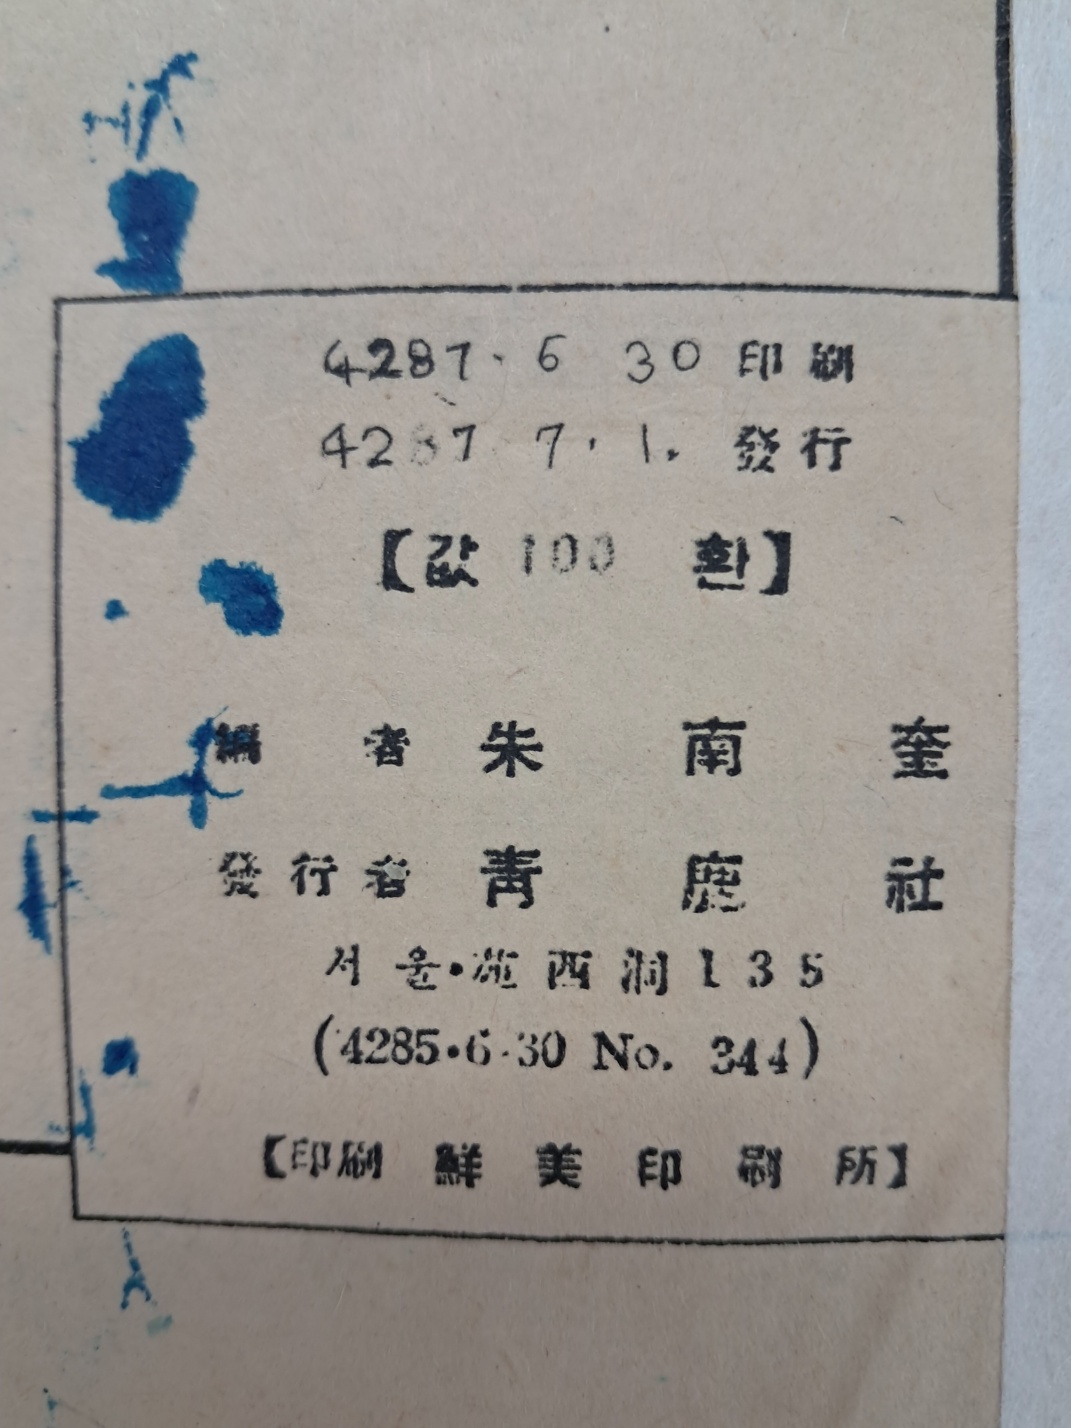 4287·6 30 印刷
4287 7·1. 發行
【값 100 환】
編者 朱南奎
發行者 靑鹿社
서울·苑西洞135
(4285·6·30 No. 344)
【印刷 鮮美印刷所】